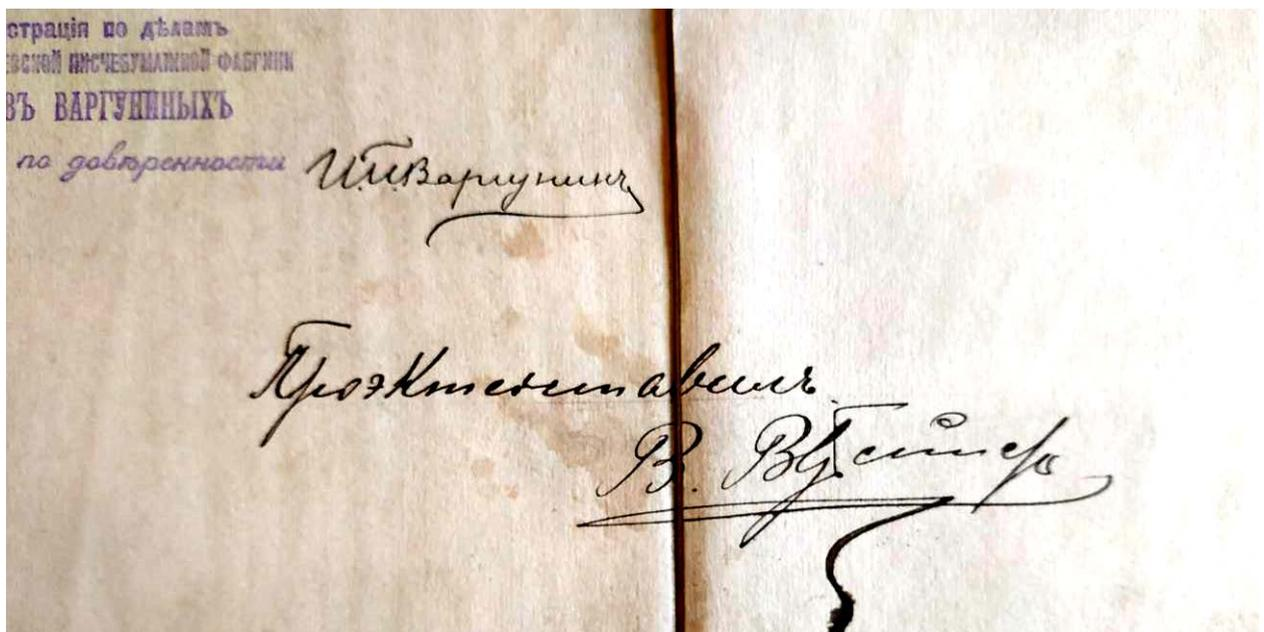 страція по дѣламъ
евской писчебумажной фабрики
въ ВАРГУНИНЫХЪ
по довѣренности
И.П.Варгунинъ
Проэктъ составилъ
В.